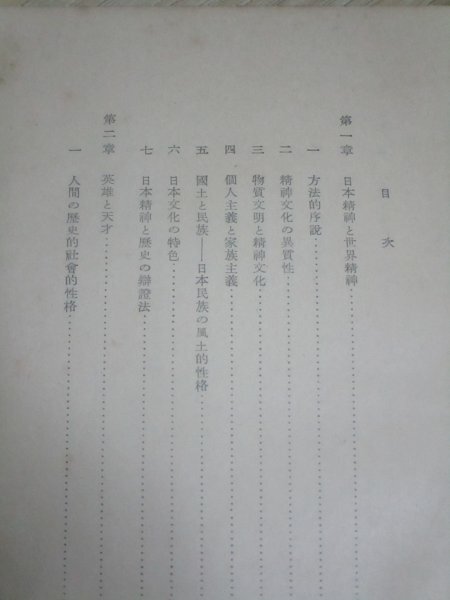 目次
第一章 日本精神と世界精神
一 方法的序説
二 精神文化の異質性
三 物質文明と精神文化
四 個人主義と家族主義
五 國土と民族――日本民族の風土的性格
六 日本文化の特色
七 日本精神と歷史の辯證法
第二章 英雄と天才
一 人間の歷史的社會的性格